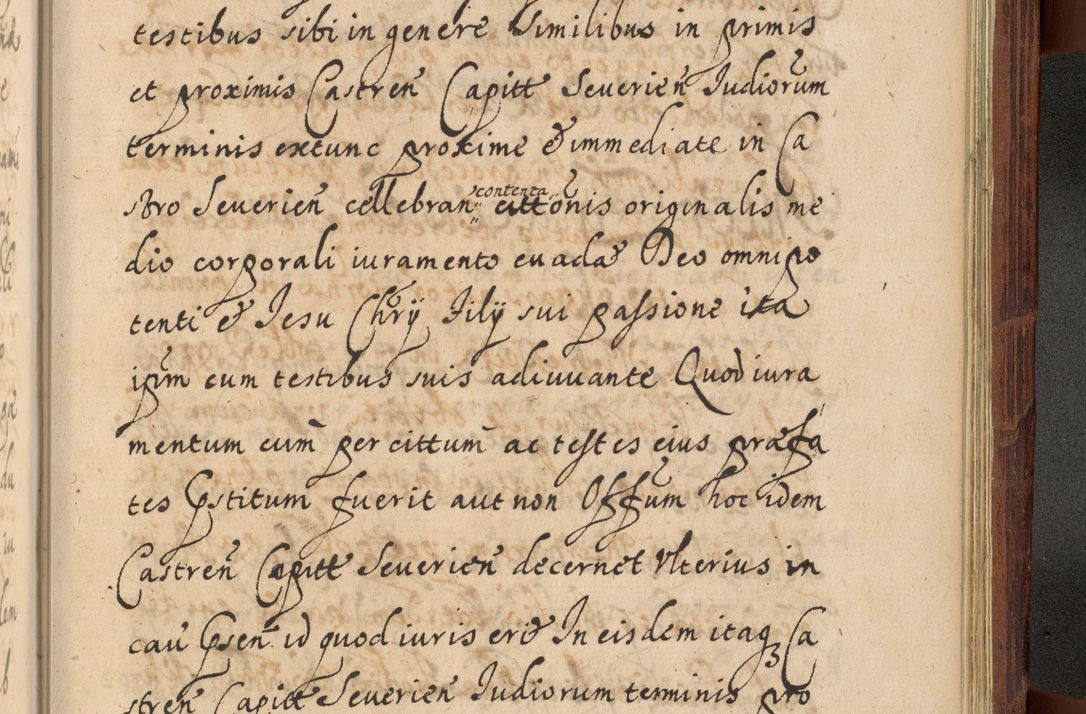 testibus sibi in genere similibus in primis
et proximis Castren Capitt Severien Iudiorum
terminis extunc proxime & immediate in Ca
stro Severien cellebran contenta cittonis originalis me
dio corporali iuramento evadat Deo omnipo
tenti & Iesu Chry Filÿ sui passione ita
ipm cum testibus suis adiuvante Quod iura
mentum eum per cittum ac testes eius præfa
tes Pstitum fuerit aut non Offum hoc idem
Castren Capitt Severien decernet Ulterius in
cau Psen id quod iuris erit In eisdem itaq Ca
stren Capitt Severien Iudiorum terminis pro